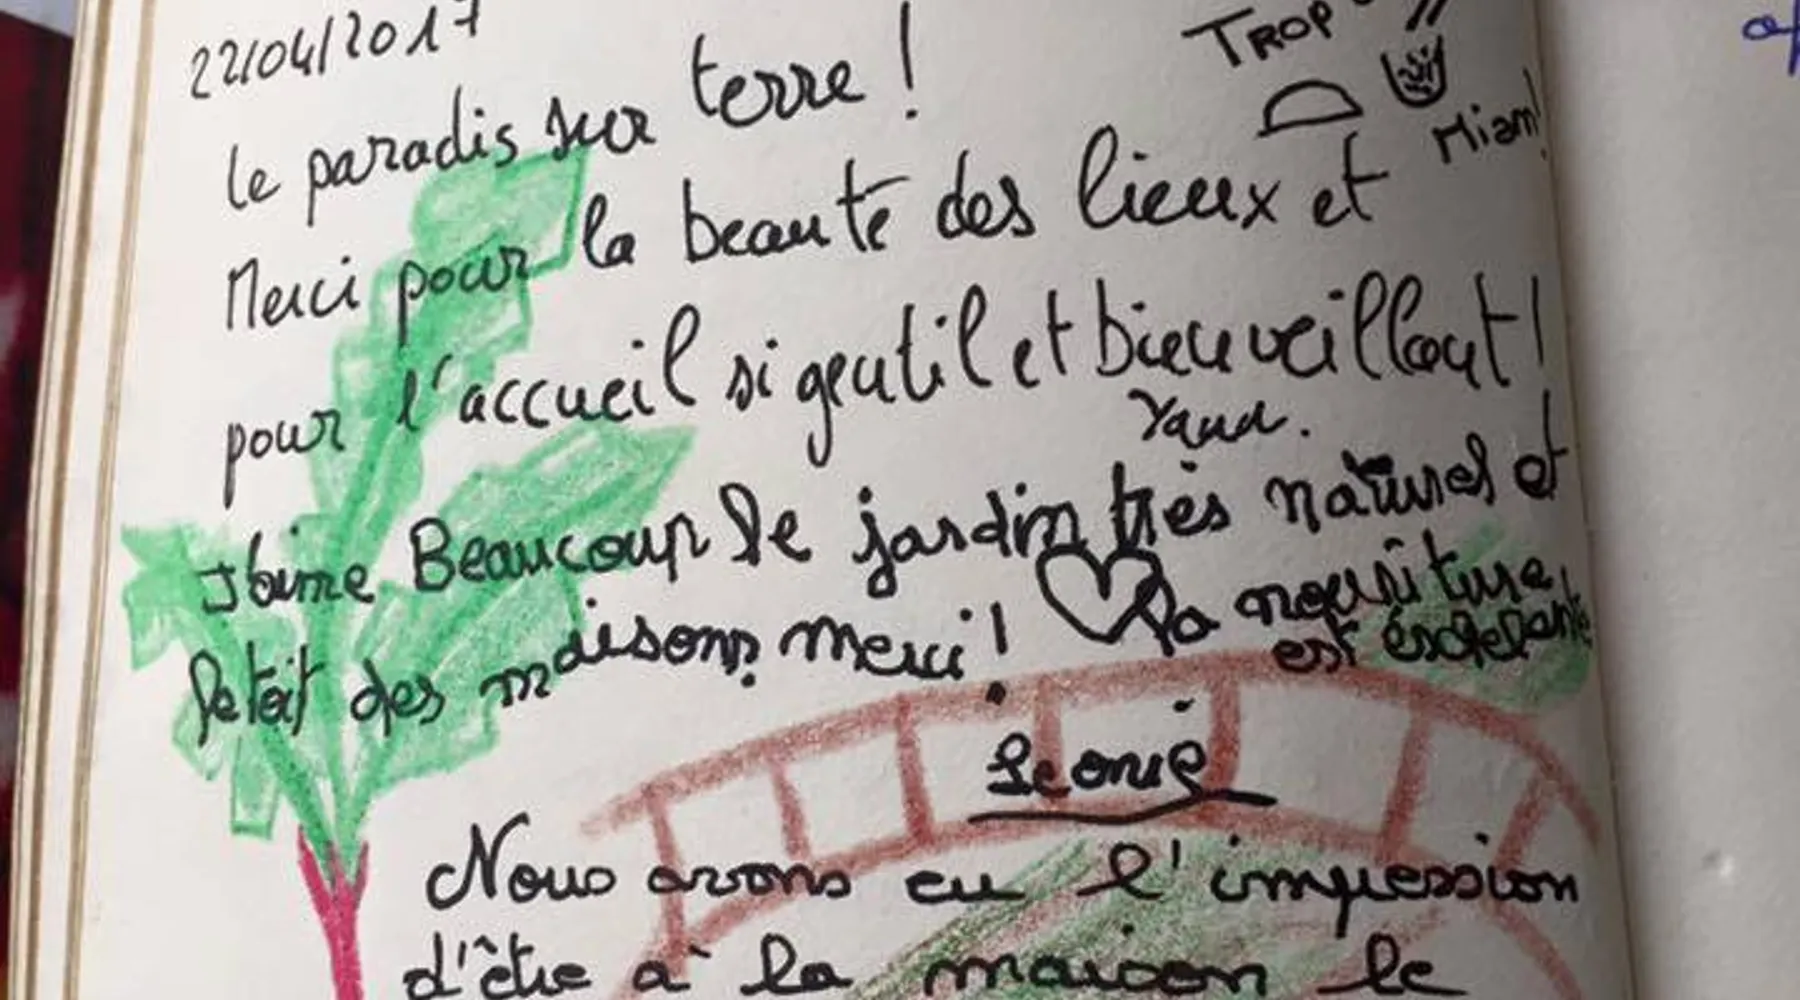 22/04/2017
TROP
le paradis sur terre !
Miam!
Merci pour la beauté des lieux et
pour l'accueil si gentil et bienveillant !
Yann.
J'aime Beaucoup le jardin très naturel et
le toit des maisons merci !
la nouriture
est
Léonie
Nous avons eu l'impression
d'être à la maison le